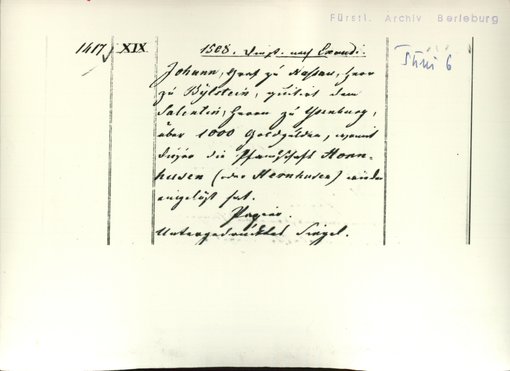 Fürstl. Archiv Berleburg
1417 XIX 1508. Dienst. nach Exaudi. Juni 6
Johann, Graf zu Nassau, Herr
zu Bylstein, quitirt dem
Salentin, Herrn zu Ysenburg,
über 1000 Goldgulden, womit
dieser die Pfandschaft Horn-
husen (oder Hernhusen) wieder
eingelöst hat.
Papier.
Untergedrücktes Siegel.